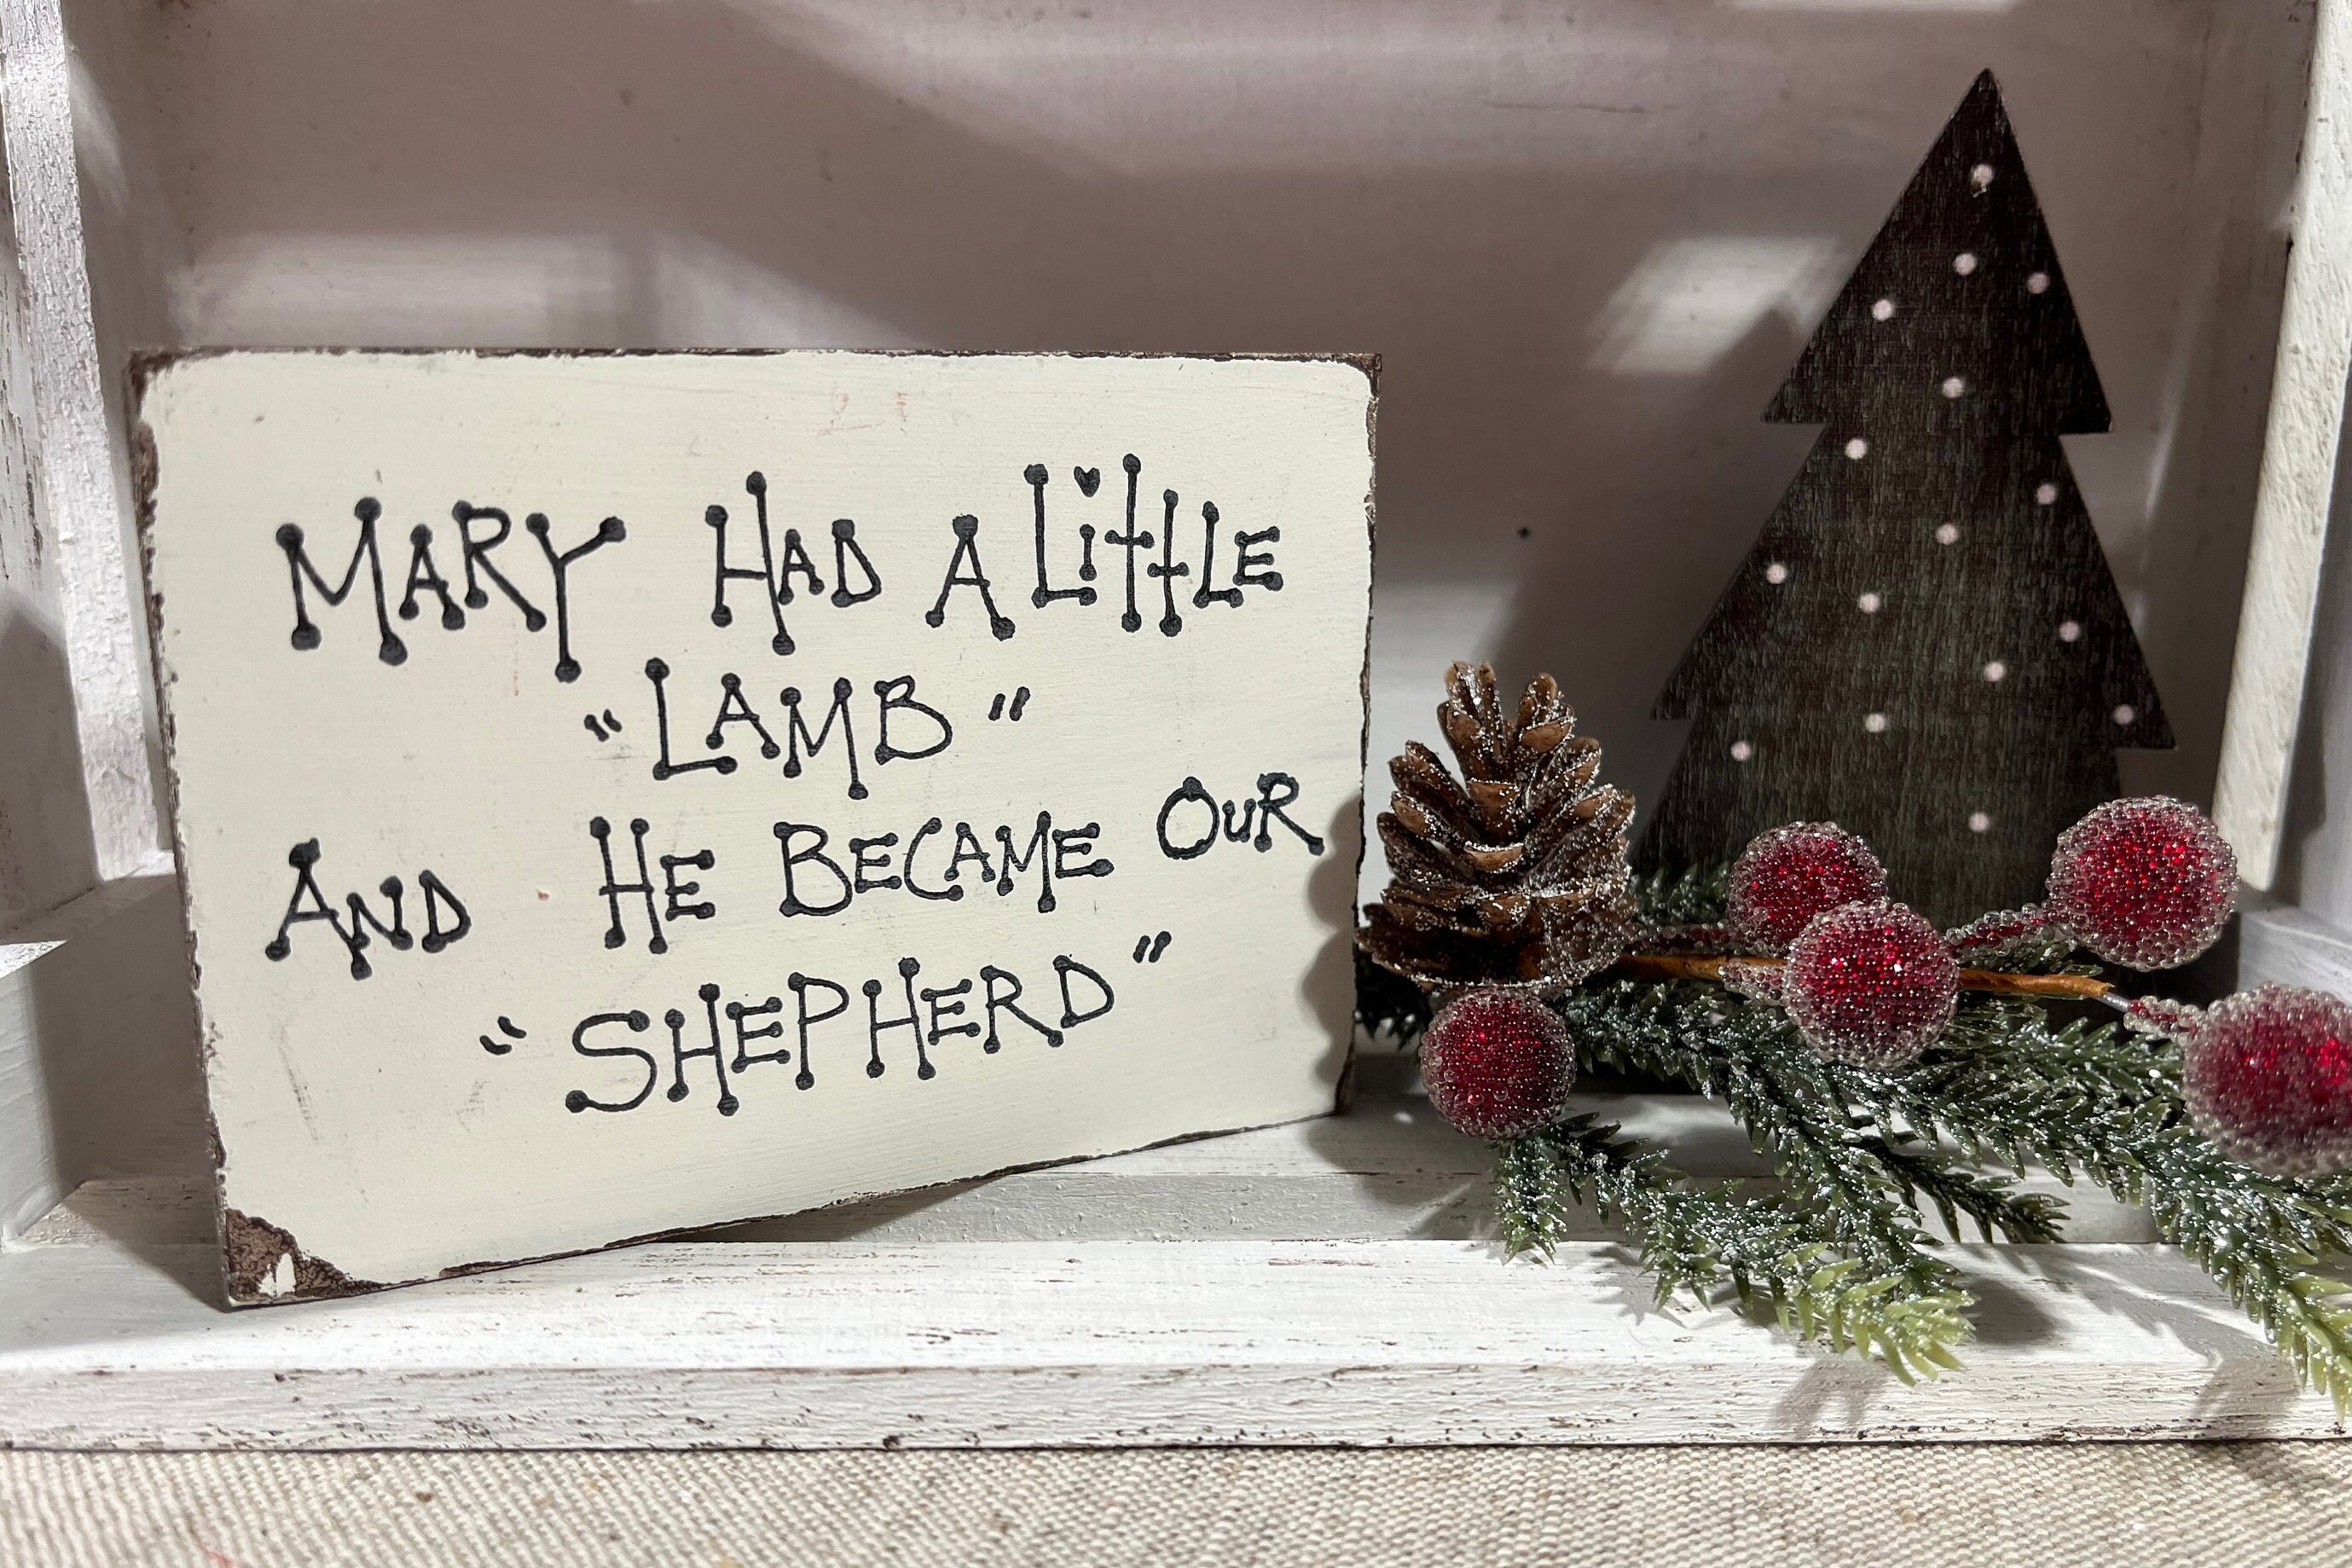 MARY HAD A LiTTLE
"LAMB"
AND HE BECAME OUR
"SHEPHERD"